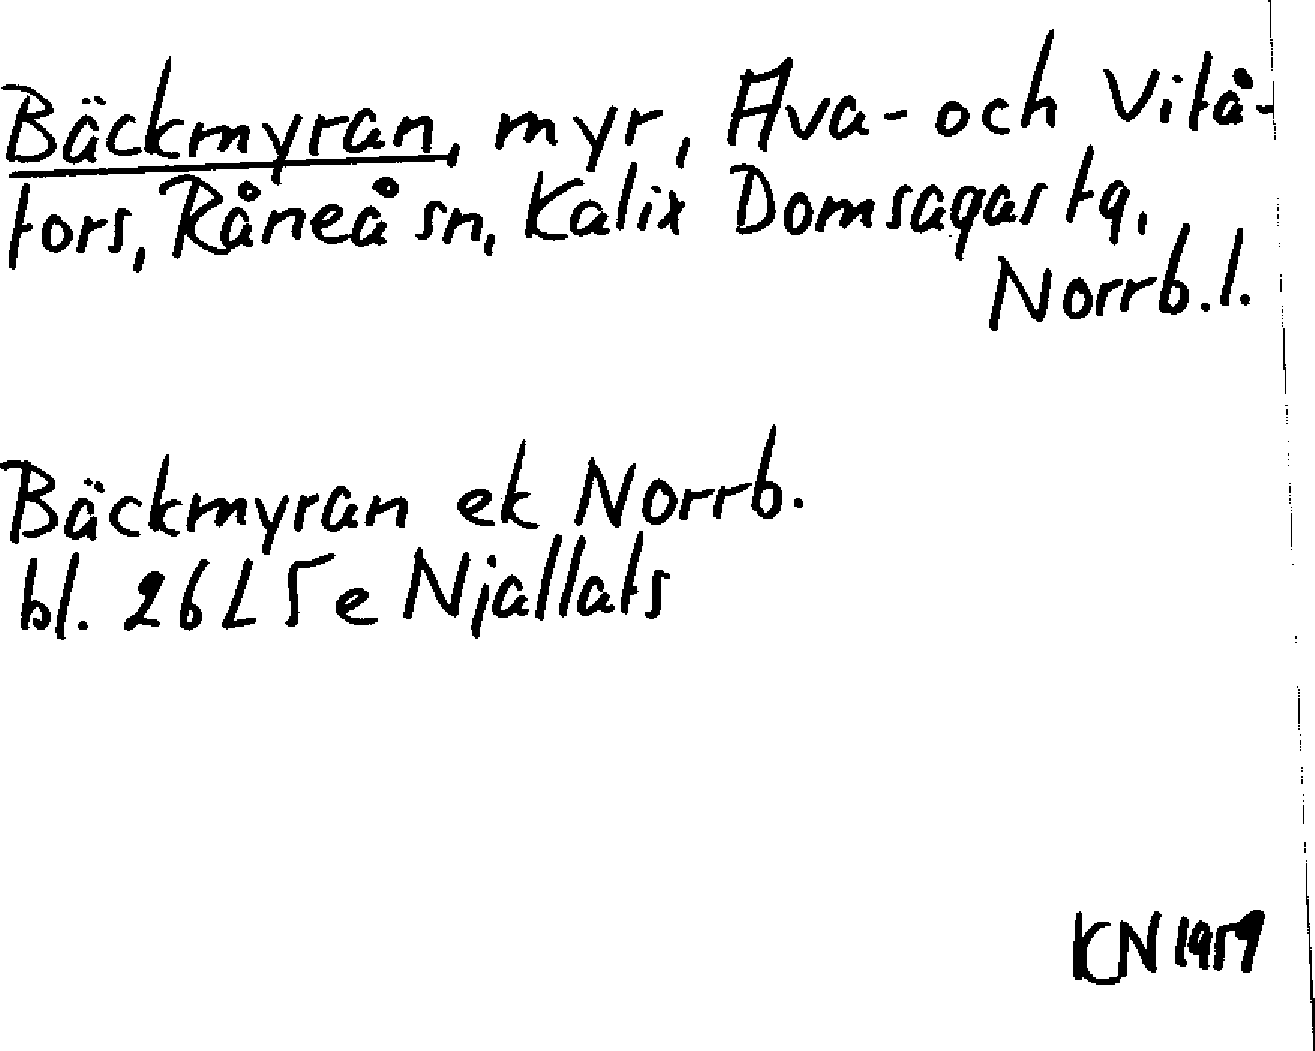 Bäckmyran, myr, Ava- och Vitå-
fors, Råneå sn, Kalix Domsagas tg,
Norrb. l.
Bäckmyran ek Norrb.
bl. 26L 5e Njallats
KN 1959